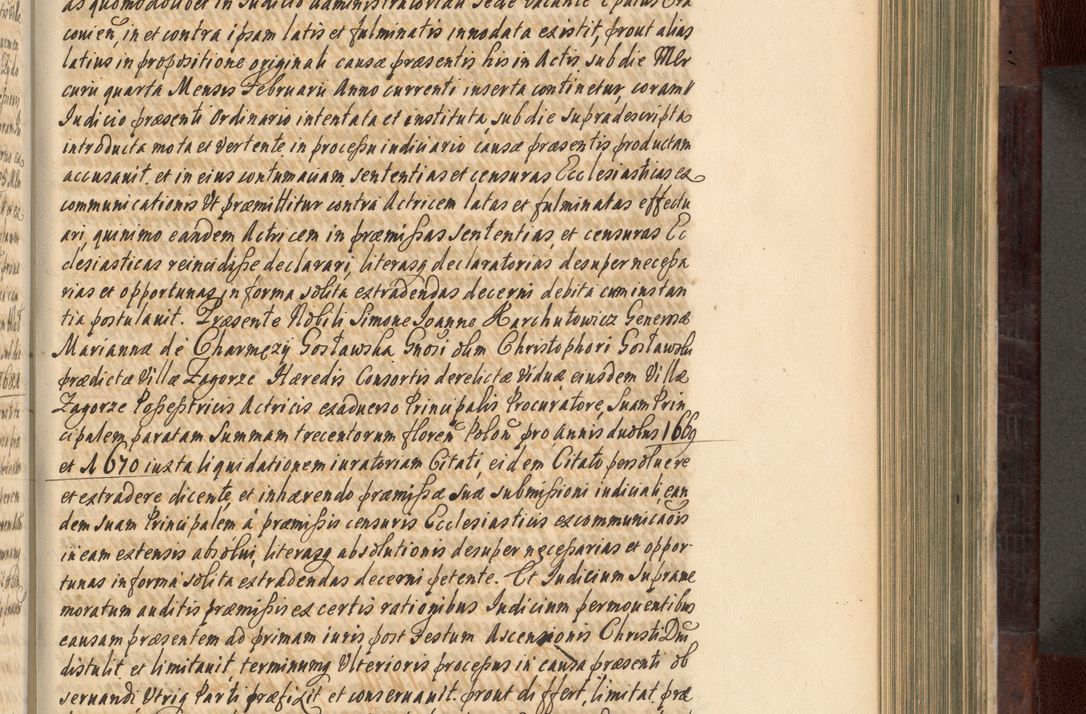 as quomodolibet in Iudicio administratoriali Sede vacante Epatus Cra
conien̄, in et contra ipsam latis et fulminatis innodata existit, prout alias
latius in propositione originali causæ præsentis his in Actis sub die Mer
curii quarta Mensis Februarii Anno currenti inserta continetur, coram
Iudicio præsenti Ordinario intentata et instituta, sub die supradescripta
introducta mota et vertente in processu iudiciario causæ præsentis productam
accusauit, et in eius contumaciam, sententias et censuras Ecclesiasticas ex
communicationis Vt præmittitur contra Actricem latas et fulminatas effectu
ari, quinimo eandem Actricem in præmissas sententias, et censuras Ec
clesiasticas reincidisse declarari, literasq declaratorias desuper necessa
rias et opportunas in forma solita extradendas decerni debita cum instan
tia postulauit. Præsente Nobili Simone Ioanne Harchutowicz Generosæ
Mariannæ de Charmęzy Gosławska Gn̄osi olim Christophori Gosławski
prædictæ Villæ Zagorze Hæredis Consortis derelictæ viduæ, eiusdem Villæ
Zagorze Possestricis Actricis exaduerso Principalis Procuratore, suam Prin
cipalem paratam Summam trecentorum floren̄ Polon̄ pro Annis duobus 1669
et A 670 iuxta liquidationem iuratoriam Citati, eidem Citato persoluere
et extradere dicente, et inhærendo præmissæ suæ submissioni iudiciali, ean
dem suam Principalem á præmissis censuris Ecclesiasticis excommunicaōis
in eam extensis absolui, literasq absolutionis desuper necessarias et oppor-
tunas in forma solita extradendas decerni petente. Et Iudicium supranе
moratum auditis præmissis ex certis rationibus Iudicium permouentibus
causam præsentem ad primam iuris post Festum Ascensionis Christi Dn̄i
distulit et limitauit, terminumq Vlterioris processus in causa præsenti ob
seruandi Vtriq Parti præfixit et conseruauit. prout differt, limitat, præ